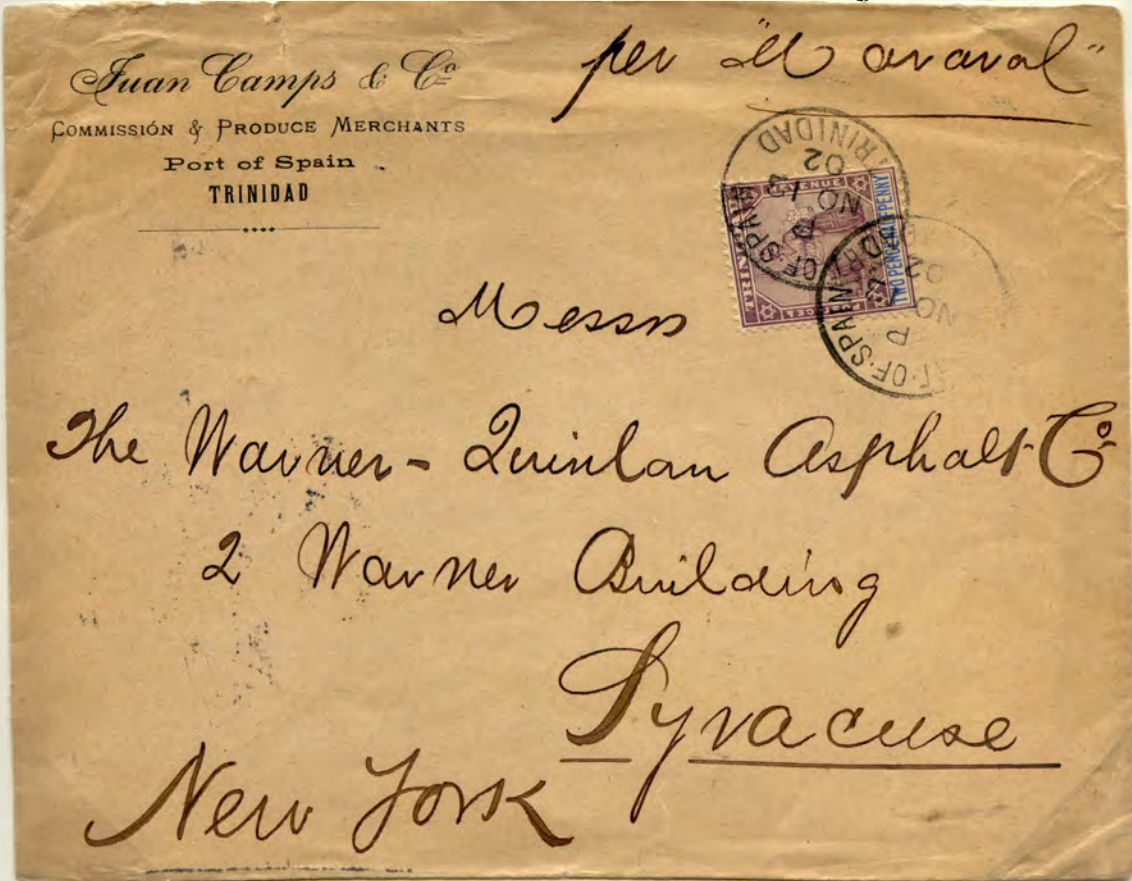 Juan Camps & Co
COMMISSIÓN & PRODUCE MERCHANTS
Port of Spain
TRINIDAD
per "Maraval"
TRINIDAD
OF·SPAIN
NO
02
TWO PENCE HALF-PENNY
OF·SPAIN
NO
02
Messrs
The Warner-Quinlan Asphalt Co
2 Warner Building
Syracuse
New York